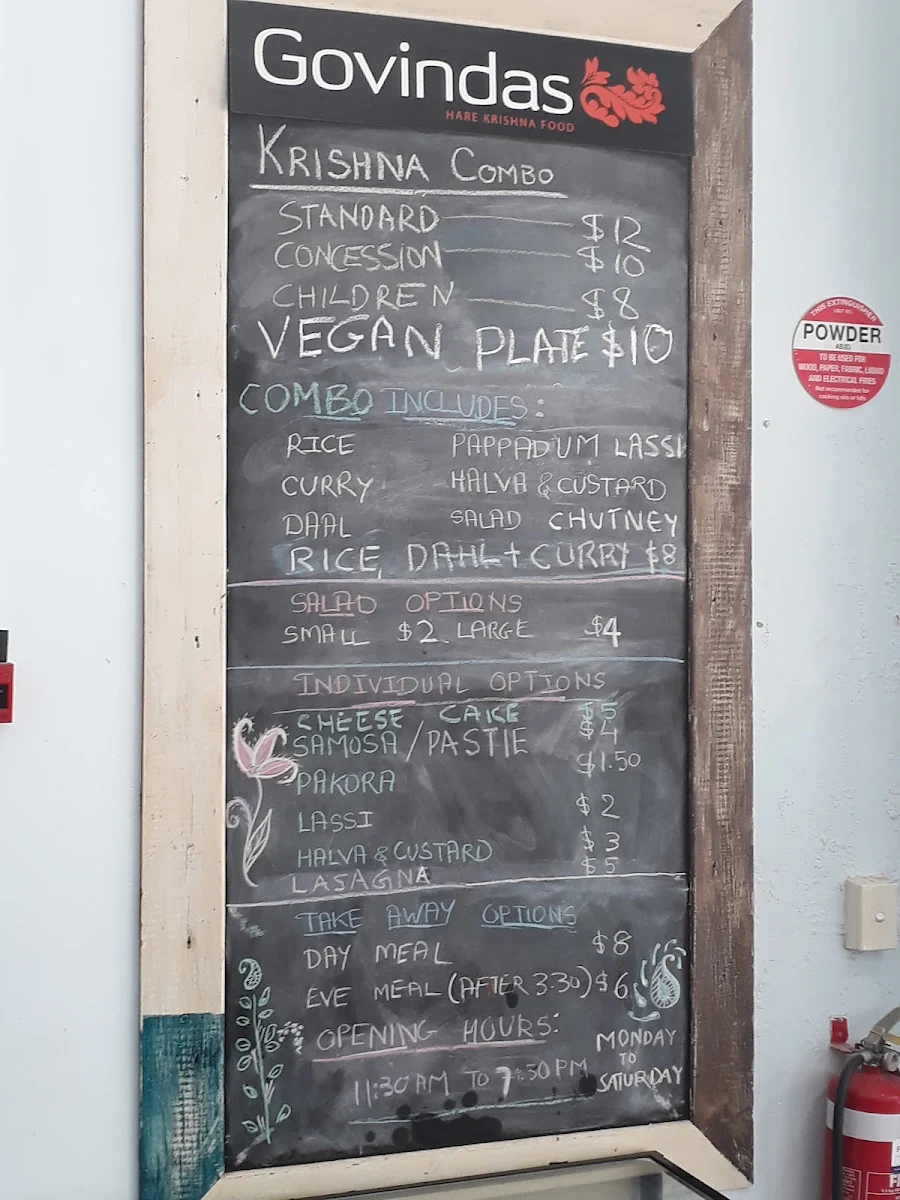 Govindas
HARE KRISHNA FOOD
KRISHNA COMBO
STANDARD $12
CONCESSION $10
CHILDREN $8
VEGAN PLATE $10
COMBO INCLUDES:
RICE PAPPADUM LASSI
CURRY HALVA & CUSTARD
DAAL SALAD CHUTNEY
RICE, DAHL + CURRY $8
SALAD OPTIONS
SMALL $2 LARGE $4
INDIVIDUAL OPTIONS
CHEESE CAKE $5
SAMOSA/PASTIE $4
PAKORA $1.50
LASSI $2
HALVA & CUSTARD $3
LASAGNA $5
TAKE AWAY OPTIONS
DAY MEAL $8
EVE MEAL (AFTER 3-30) $6
OPENING HOURS:
MONDAY
TO
SATURDAY
11:30 AM TO 7:30 PM
THIS EXTINGUISHER
POWDER
AB(E)
TO BE USED FOR
WOOD, PAPER, FABRIC, LIQUID
AND ELECTRICAL FIRES
Not recommended for
cooking oils or fats